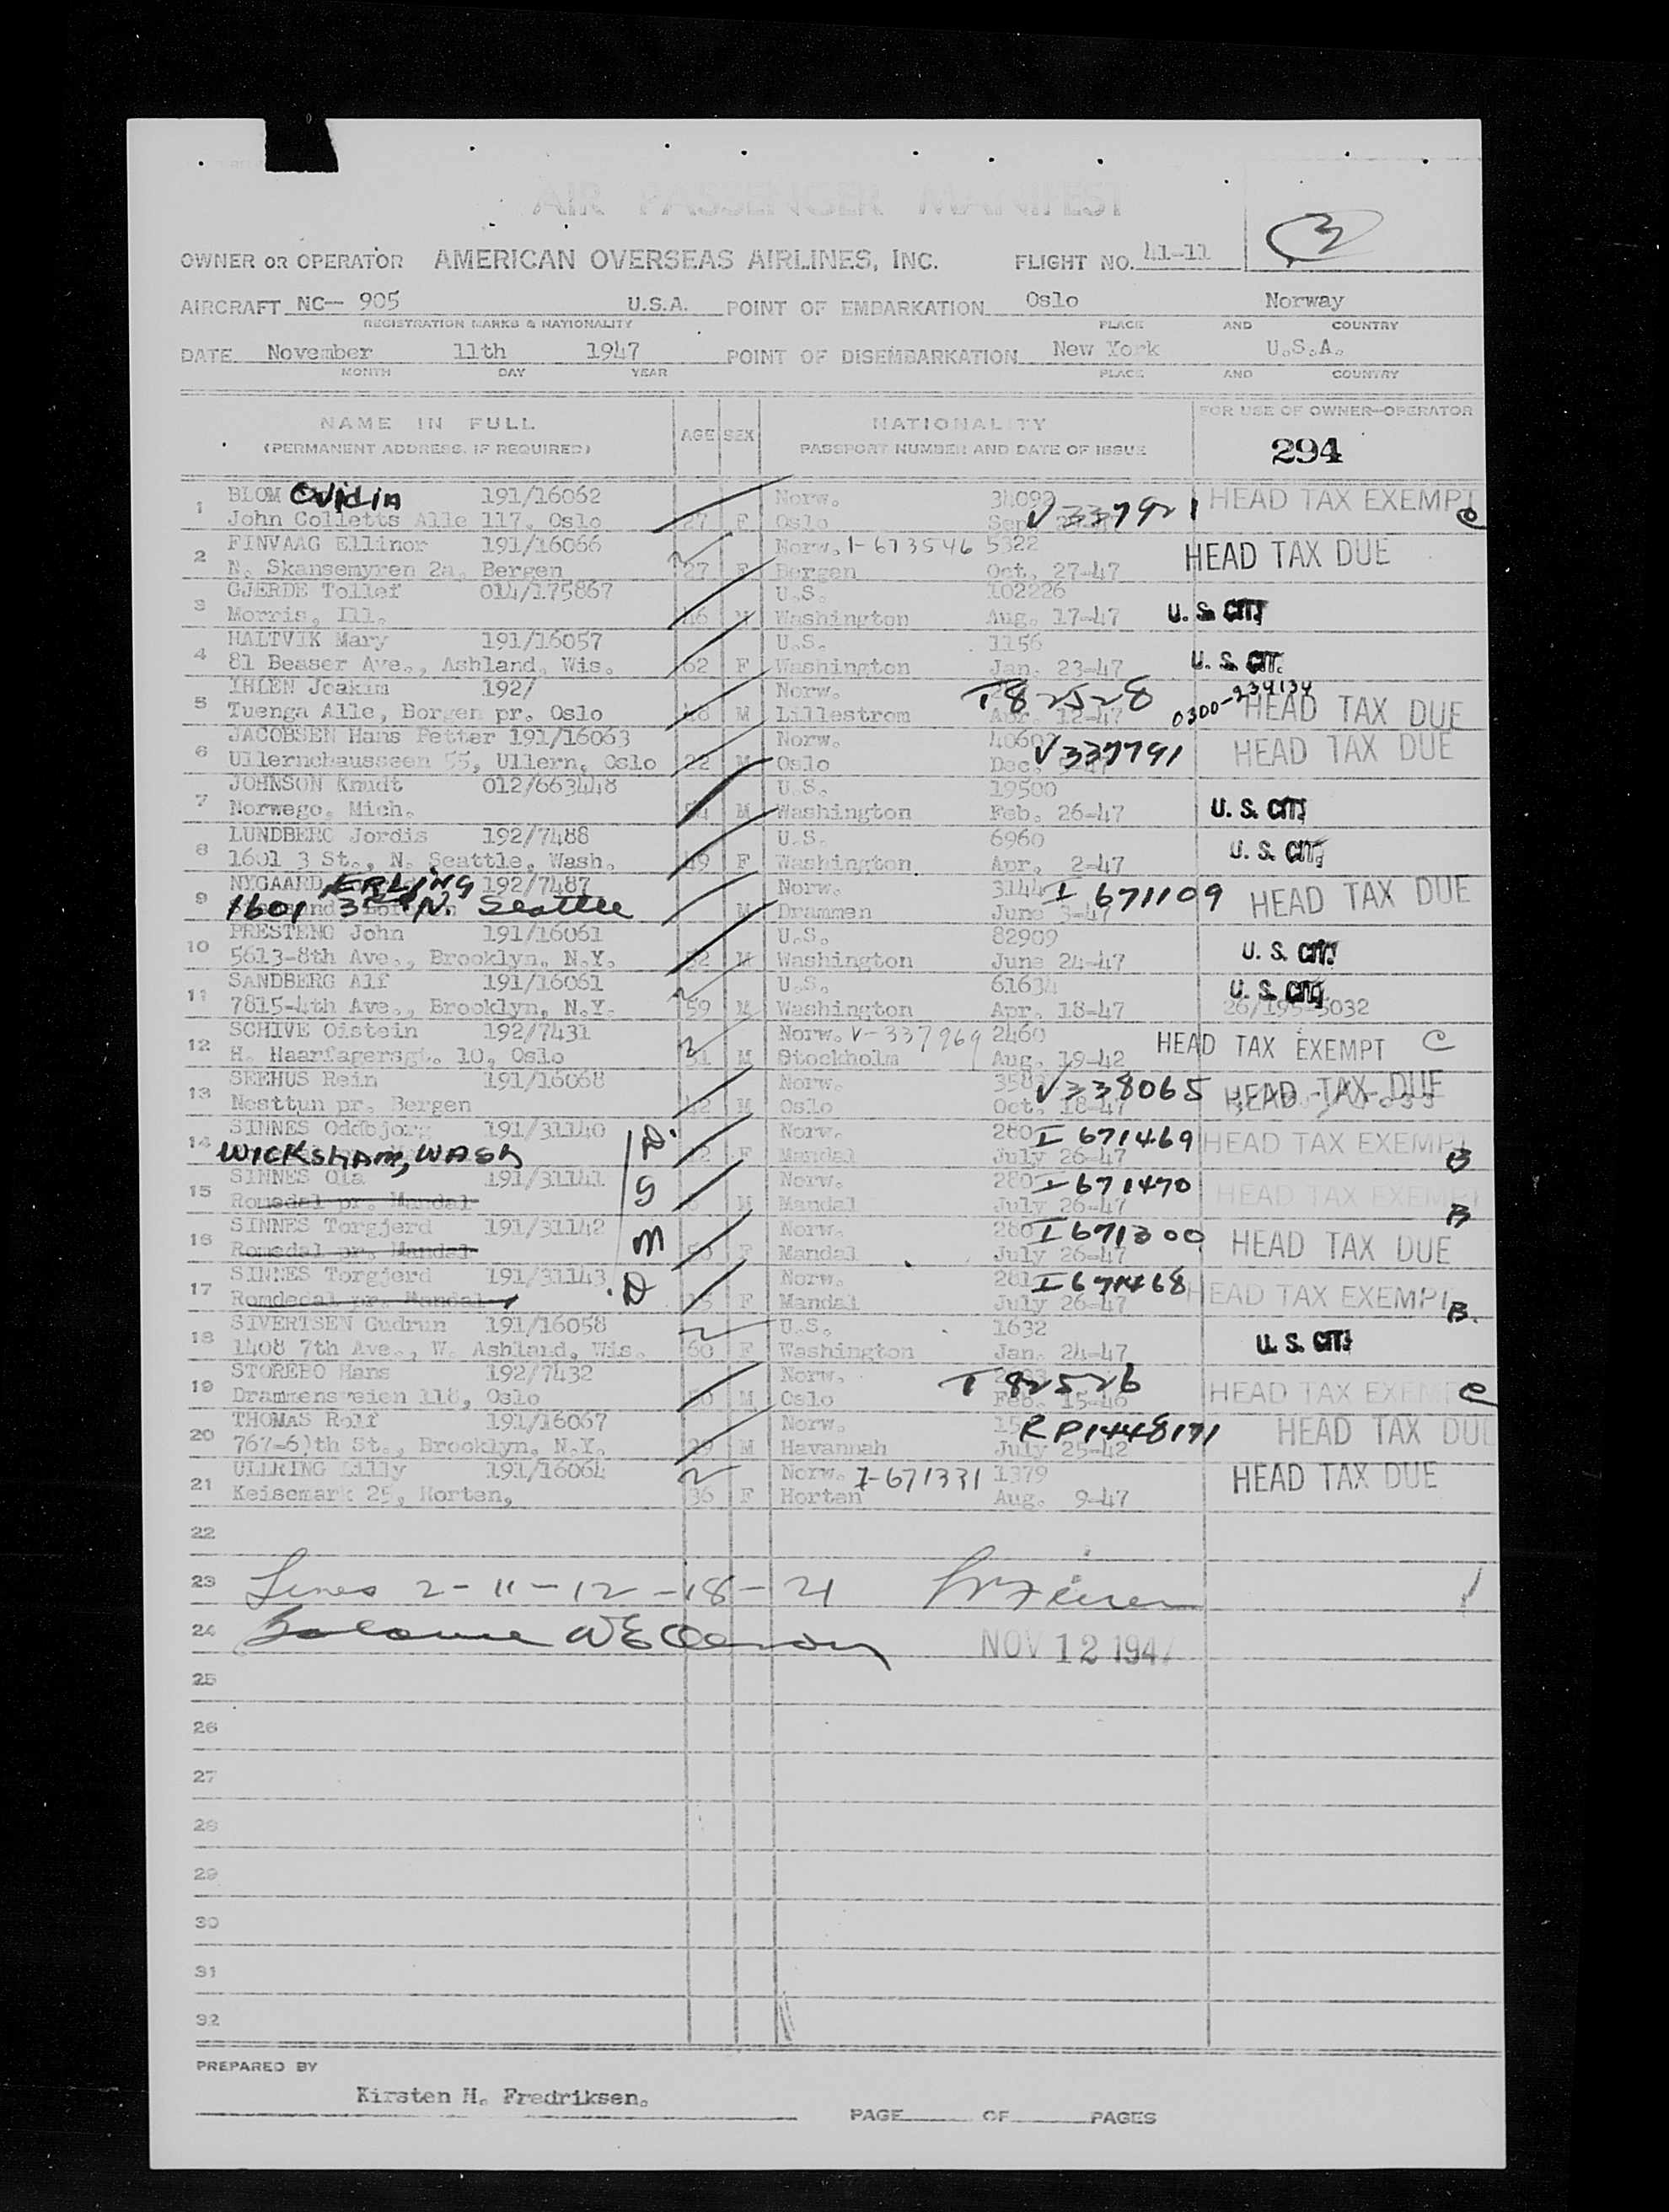 AIR PASSENGER MANIFEST
3
OWNER OR OPERATOR AMERICAN OVERSEAS AIRLINES, INC. FLIGHT NO. 41-11
AIRCRAFT NC— 905 U.S.A. POINT OF EMBARKATION Oslo Norway
REGISTRATION MARKS & NATIONALITY PLACE AND COUNTRY
DATE November 11th 1947 POINT OF DISEMBARKATION New York U.S.A.
MONTH DAY YEAR PLACE AND COUNTRY
NAME IN FULL AGE SEX NATIONALITY FOR USE OF OWNER-OPERATOR
(PERMANENT ADDRESS, IF REQUIRED) PASSPORT NUMBER AND DATE OF ISSUE 294
1 BLOM 191/16062 Norw. 34092 HEAD TAX EXEMPT C
John Colletts Alle 117, Oslo 27 F Oslo V337921
2 FINVAAG Ellinor 191/16066 Norw. I-673546 5322 HEAD TAX DUE
N. Skansemyren 2a, Bergen 27 F Bergen Oct. 27-47
3 GJERDE Tollef 014/175867 U.S. 102226
Morris, Ill. 46 M Washington Aug. 17-47 U. S. CIT.
4 HALTVIK Mary 191/16057 U.S. 1156
81 Beaser Ave., Ashland, Wis. 62 F Washington Jan. 23-47 U. S. CIT.
5 IHLEN Joakim 192/ Norw. T82528 0300-234134
Tuenga Alle, Borgen pr. Oslo 48 M Lillestrom Apr. 12-47 HEAD TAX DUE
6 JACOBSEN Hans Petter 191/16063 Norw. 40607 V337791 HEAD TAX DUE
Ullernchausseen 55, Ullern, Oslo 22 M Oslo Dec.
7 JOHNSON Knudt 012/663448 U.S. 19500
Norwego, Mich. 54 M Washington Feb. 26-47 U. S. CIT.
8 LUNDBERG Jordis 192/7488 U.S. 6960
1601 3 St., N. Seattle, Wash. 49 F Washington Apr. 2-47 U. S. CIT.
9 NYGAARD ERLING 192/7487 Norw. 3144 I 671109 HEAD TAX DUE
1601 3RD N. Seattle M Drammen June 3-47
10 PRESTENG John 191/16061 U.S. 82909
5613-8th Ave., Brooklyn, N.Y. 52 M Washington June 24-47 U. S. CIT.
11 SANDBERG Alf 191/16061 U.S. 61634 U. S. CIT.
7815-4th Ave., Brooklyn, N.Y. 59 M Washington Apr. 18-47 26/195-5032
12 SCHIVE Oistein 192/7431 Norw. V-337969 2460 HEAD TAX EXEMPT C
H. Haarfagersgt. 10, Oslo 31 M Stockholm Aug. 19-42
13 SEEHUS Rein 191/16068 Norw. 358 V338065 HEAD TAX DUE
Nesttun pr. Bergen 42 M Oslo Oct. 18-47
14 SINNES Oddbjorg 191/31140 D. Norw. 280 I 671469 HEAD TAX EXEMPT B
WICKSHAM, WASH F Mandal July 26-47
15 SINNES Ola 191/31141 S Norw. 280 I 671470 HEAD TAX EXEMPT B
Romsdal pr. Mandal M Mandal July 26-47
16 SINNES Torgjerd 191/31142 M Norw. 280 I 671300 HEAD TAX DUE
Romsdal pr. Mandal 50 F Mandal July 26-47
17 SINNES Torgjerd 191/31143 D Norw. 281 I 671468 HEAD TAX EXEMPT B.
Romdedal pr. Mandal 15 F Mandal July 26-47
18 SIVERTSEN Gudrun 191/16058 U.S. 1632 U. S. CIT.
1408 7th Ave., W. Ashland, Wis. 60 F Washington Jan. 24-47
19 STOREBO Hans 192/7432 Norw. T82526 HEAD TAX EXEMPT C
Drammensveien 118, Oslo 50 M Oslo Feb. 15-46
20 THOMAS Rolf 191/16067 Norw. 15 RP1448171 HEAD TAX DUE
767-60th St., Brooklyn, N.Y. 29 M Havannah July 25-42
21 ULLRING Lilly 191/16064 Norw. I-671331 1379 HEAD TAX DUE
Keisemark 25, Horten, 36 F Horten Aug. 9-47
22
23 Lines 2-11-12-18-21
24 Balance NOV 12 1947
25
26
27
28
29
30
31
32
PREPARED BY
Kirsten H. Fredriksen.
PAGE OF PAGES